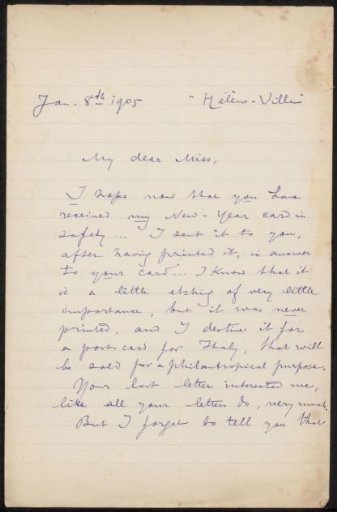 Jan. 8th 1905 "Hélèn-Villa"
My dear Miss,
I hope now that you have
received my New-Year card in
safety... I sent it to you,
after having printed it, in answer
to your card... I know that it
is a little etching of very little
importance, but it was never
printed, and I destine it for
a post-card for Italy, that will
be sold for a philantropical purpose.
Your last letter interested me,
like all your letters do, very much.
But I forget to tell you that